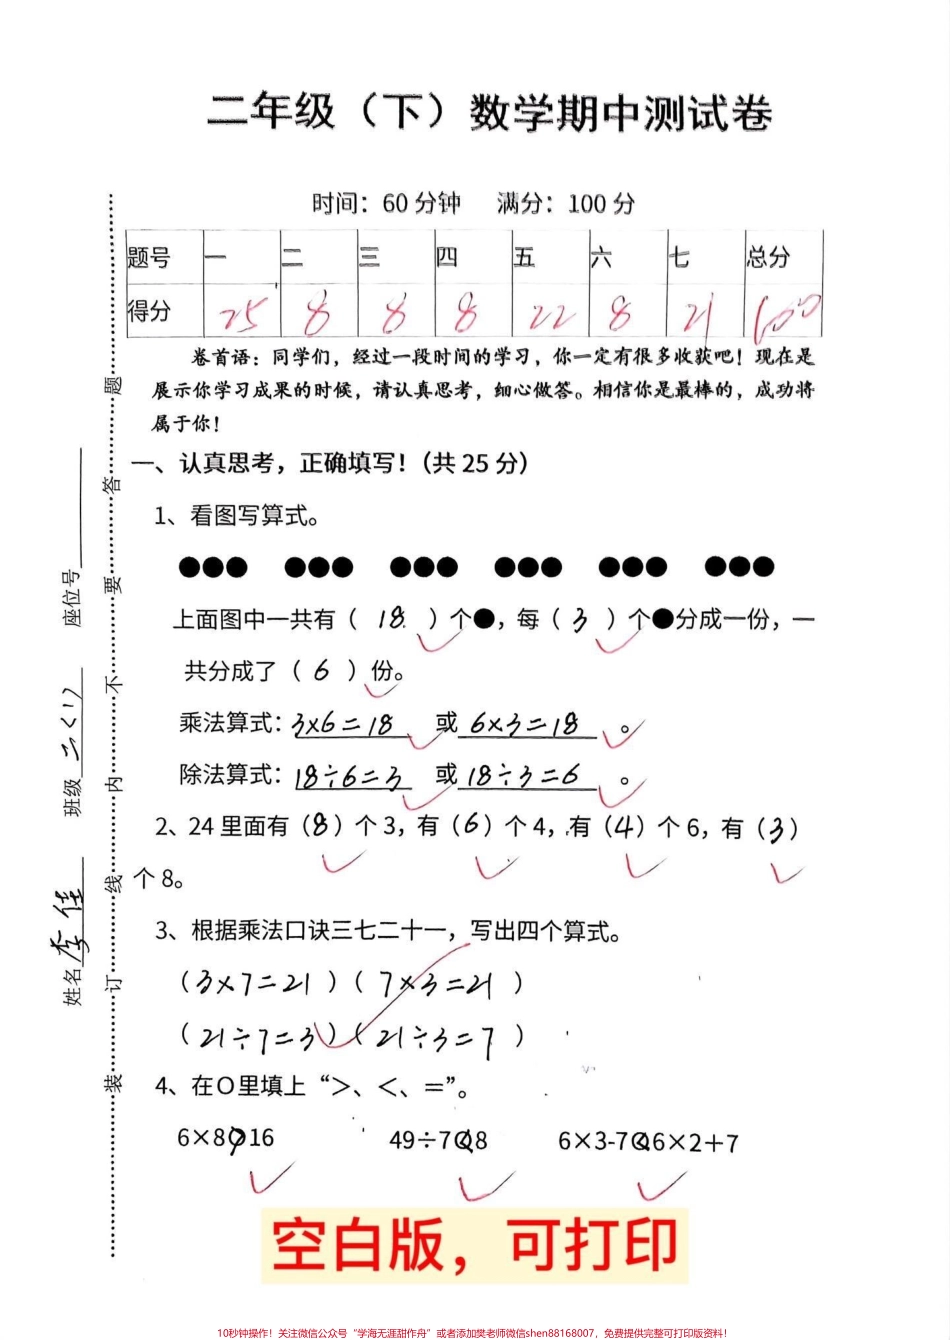 二年级（下）数学期中测试卷
时间：60分钟 满分：100分
题号 一 二 三 四 五 六 七 总分
得分 25 8 8 8 22 8 21 100
卷首语：同学们，经过一段时间的学习，你一定有很多收获吧！现在是
展示你学习成果的时候，请认真思考，细心做答。相信你是最棒的，成功将
属于你！
一、认真思考，正确填写！（共25分）
1、看图写算式。
上面图中一共有（ 18 ）个●，每（ 3 ）个●分成一份，一
共分成了（ 6 ）份。
乘法算式：3×6=18 或 6×3=18 。
除法算式：18÷6=3 或 18÷3=6 。
2、24里面有（8）个3，有（6）个4，有（4）个6，有（3）
个8。
3、根据乘法口诀三七二十一，写出四个算式。
（3×7=21）（7×3=21）
（21÷7=3）（21÷3=7）
4、在○里填上“>、<、=”。
6×8>16 49÷7<8 6×3-7<6×2+7
姓名 李佳 班级 二（1） 座位号
装 订 线 内 不 要 答 题
空白版，可打印
10秒钟操作！关注微信公众号“学海无涯甜作舟”或者添加樊老师微信shen88168007，免费提供完整可打印版资料！